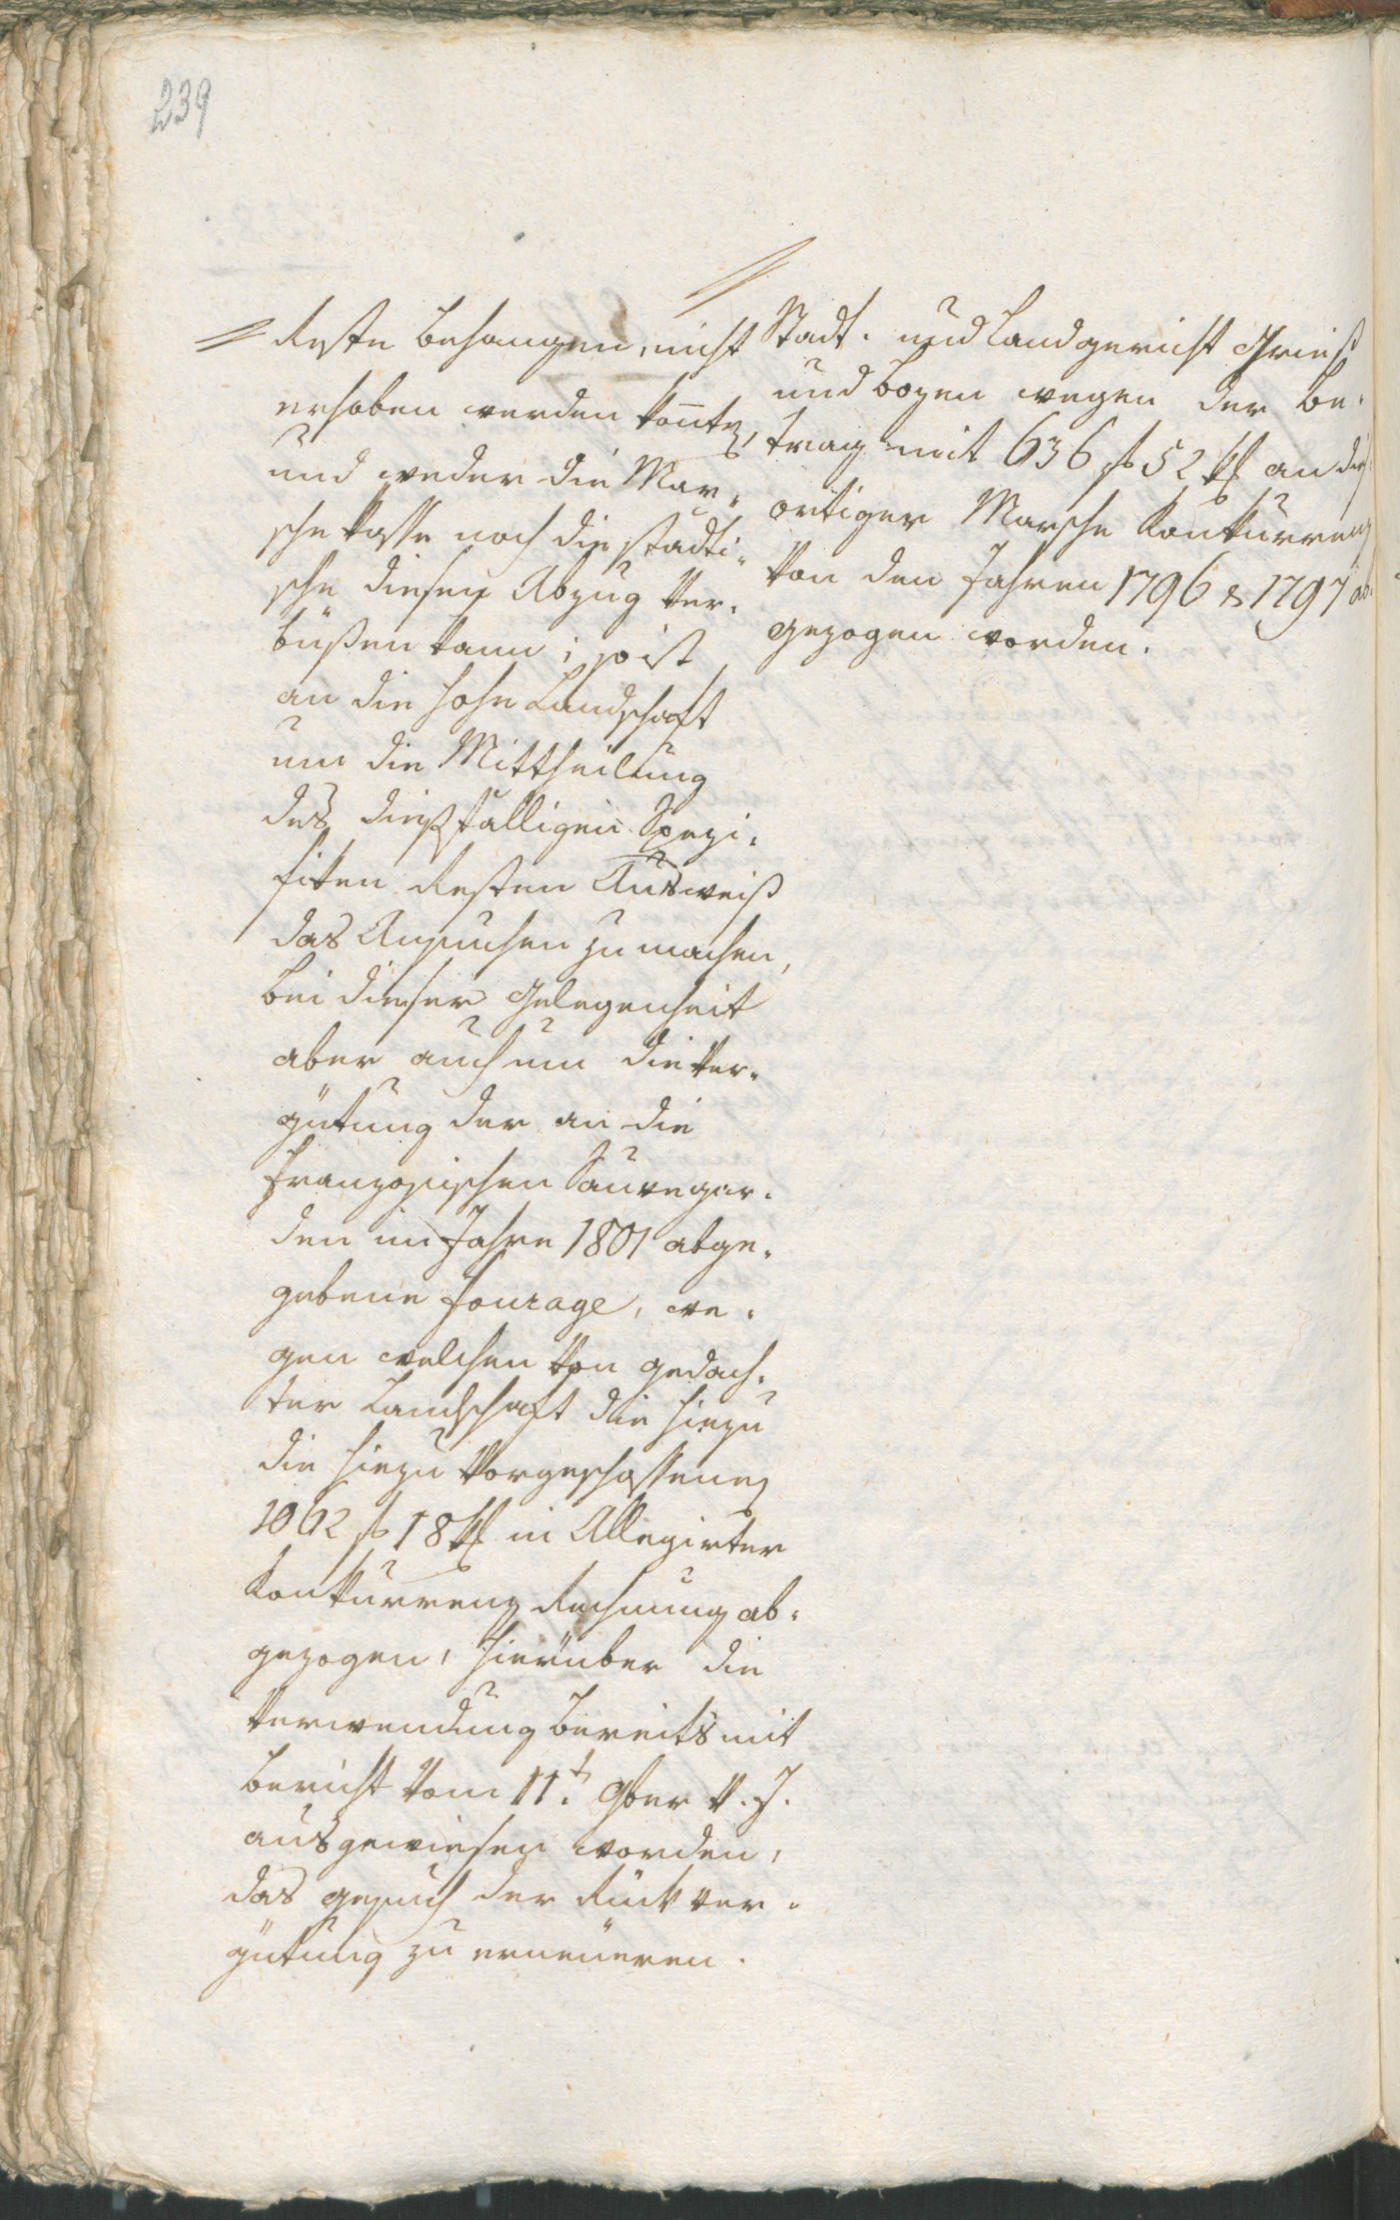 239
Reste behangen, nicht
erhoben werden konnte,
und weder die Mar-
sche Kasse noch die städti-
sche diesen Abzug ver-
büßen kann; so ist
an die hohe Landschaft
um die Mittheilung
des dießfälligen Spezi-
fiken Resten Ausweiß
das Ansuchen zu machen,
bei dieser Gelegenheit
aber auch um die Ver-
gütung der an die
französischen Sauvegar-
den im Jahre 1801 abge-
gebene Fourage, we-
gen welchen von gedach-
ter Landschaft die hiezu
die hiezu vorgeschossenen
1062 f 18 kr in Allegirter
Konkurrenz Rechnung ab-
gezogen, hierüber die
Verwendung bereits mit
Bericht vom 11t. 9ber v. J.
ausgewiesen worden,
das Gesuch der Rückver-
gütung zu erneueren.
Stadt- und Landgericht Grieß
und Bozen wegen der Be-
trag mit 636 f 52 kr an dies-
ortiger Marsche Konkurrenz
von den Jahren 1796 & 1797 ab-
gezogen worden.